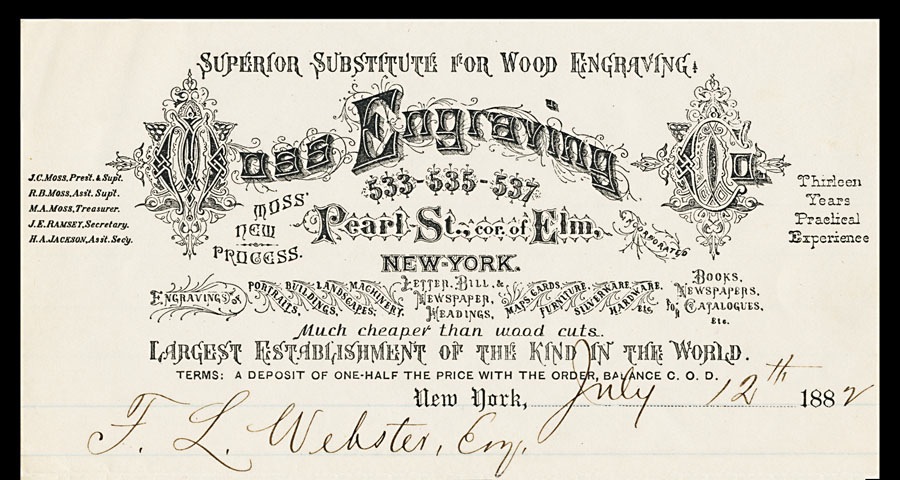 SUPERIOR SUBSTITUTE FOR WOOD ENGRAVING.
Moss Engraving Co.
J.C. MOSS, Prest. & Supt.
R.B. MOSS, Asst. Supt.
M.A. MOSS, Treasurer.
J.E. RAMSEY, Secretary.
H.A. JACKSON, Asst. Secy.
MOSS'
NEW
PROCESS.
533-535-537
Pearl St., cor. of Elm,
INCORPORATED
NEW-YORK.
Thirteen
Years
Practical
Experience
ENGRAVINGS OF
PORTRAITS, BUILDINGS, LANDSCAPES, MACHINERY,
LETTER, BILL, &
NEWSPAPER,
HEADINGS,
MAPS, CARDS, FURNITURE, SILVERWARE, HARDWARE, ETC
FOR
BOOKS,
NEWSPAPERS,
CATALOGUES,
ETC.
Much cheaper than wood cuts.
LARGEST ESTABLISHMENT OF THE KIND IN THE WORLD.
TERMS: A DEPOSIT OF ONE-HALF THE PRICE WITH THE ORDER, BALANCE C. O. D.
New York, July 12th 1882
F. L. Webster, Esq.